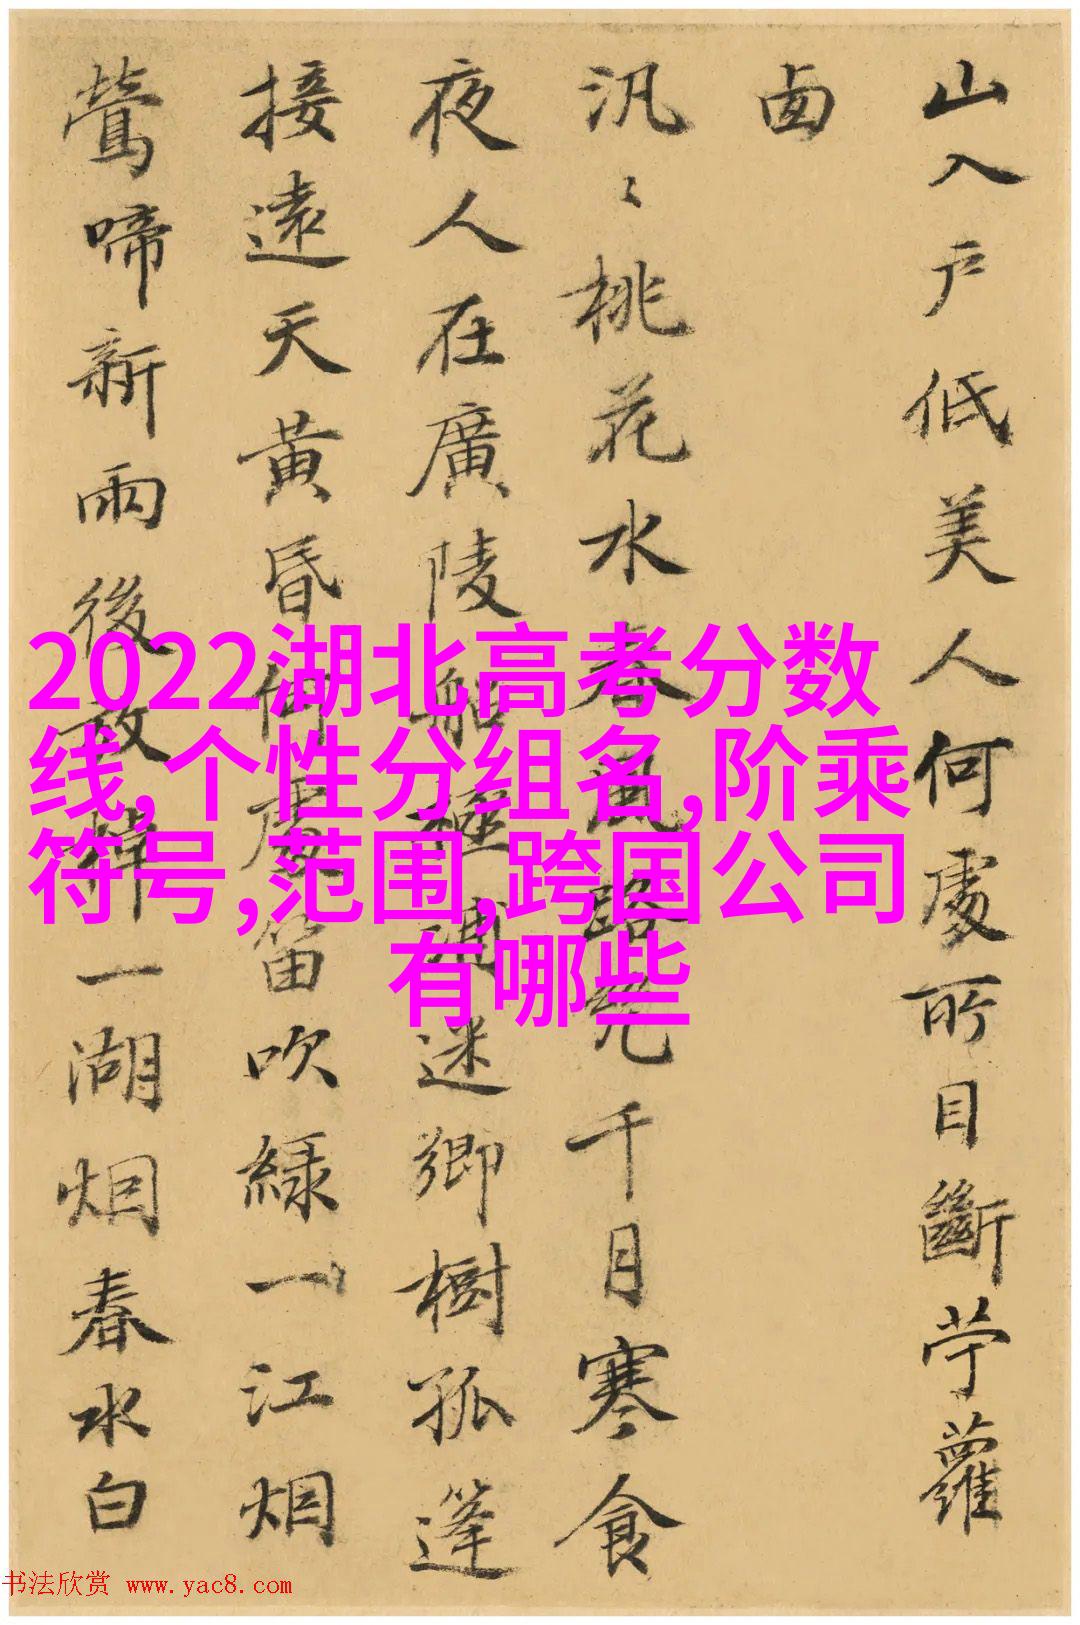 山入户低美人何處所目斷苧蘿
汎〻桃花水春風路千月寒食
夜人在廣陵船極浦迷鄉樹孤篷
接遠天黃昏何處笛吹綠一江烟
鶯啼新雨後放棹一湖烟春水白
2022湖北高考分数
线,个性分组名,阶乘
符号,范围,跨国公司
有哪些
书法欣赏 www.yac8.com